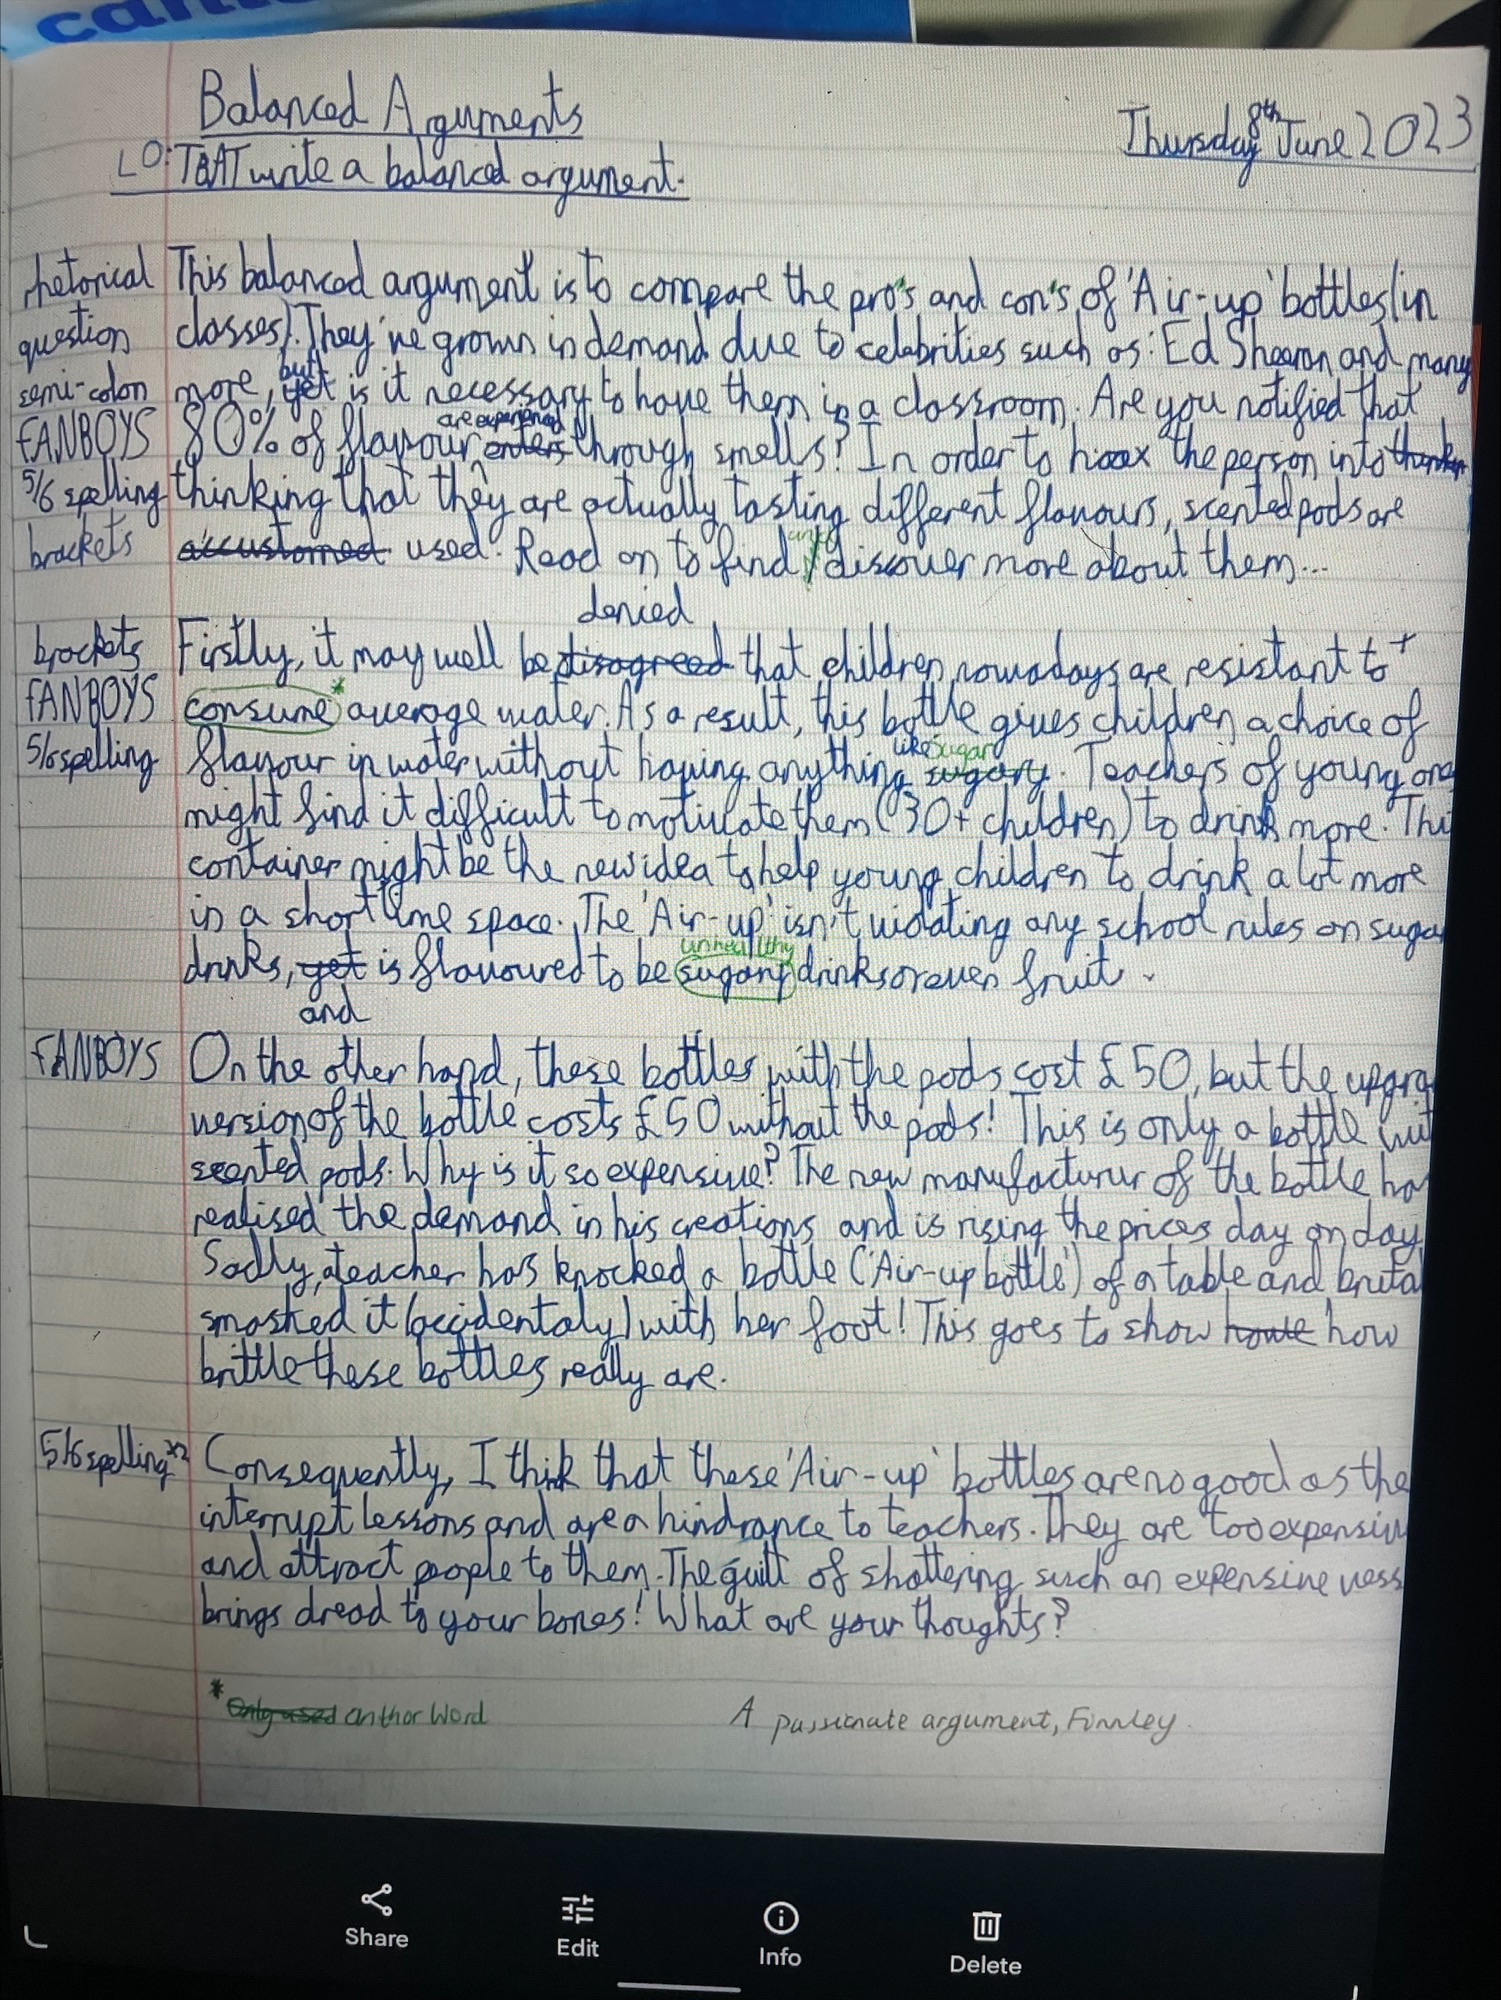 Balanced Arguments
Thursday 8th June 2023
LO: TBAT write a balanced argument.
rhetorical
question
semi-colon
FANBOYS
5/6 spelling
brackets
This balanced argument is to compare the pro's and con's of 'Air-up' bottles (in
classes). They've grown in demand due to celebrities such as: Ed Sheeran and many
more, but yet is it necessary to have them in a classroom. Are you notified that
80% of flavour are experienced enters through smells? In order to hoax the person into
thinking that they are actually tasting different flavours, scented pods are
accustomed used. Read on to find and / discover more about them...
brackets
FANBOYS
5/6 spelling
denied
Firstly, it may well be disagreed that children nowadays are resistant to
consume* average water. As a result, this bottle gives children a choice of
flavour in water without having anything like sugar sugary. Teachers of young ones
might find it difficult to motivate them (30+ children) to drink more. This
container might be the new idea to help young children to drink a lot more
in a short time space. The 'Air-up' isn't violating any school rules on suga
unhealthy
drinks, yet is flavoured to be sugary drinks or even fruit.
and
FANBOYS
On the other hand, these bottles with the pods cost £50, but the upgra
version of the bottle costs £50 without the pods! This is only a bottle wit
scented pods. Why is it so expensive? The new manufacturer of the bottle ha
realised the demand in his creations and is rising the prices day on day
Sadly, a teacher has knocked a bottle ('Air-up bottle') of a table and bruta
smashed it (accidentaly) with her foot! This goes to show how
brittle these bottles really are.
5/6 spelling x2
Consequently, I think that these 'Air-up' bottles are no good as the
interrupt lessons and are a hindrance to teachers. They are too expensiv
and attract people to them. The guilt of shattering such an expensive vess
brings dread to your bones! What are your thoughts?
* Only used anthor word
A passionate argument, Finnley
Share
Edit
Info
Delete